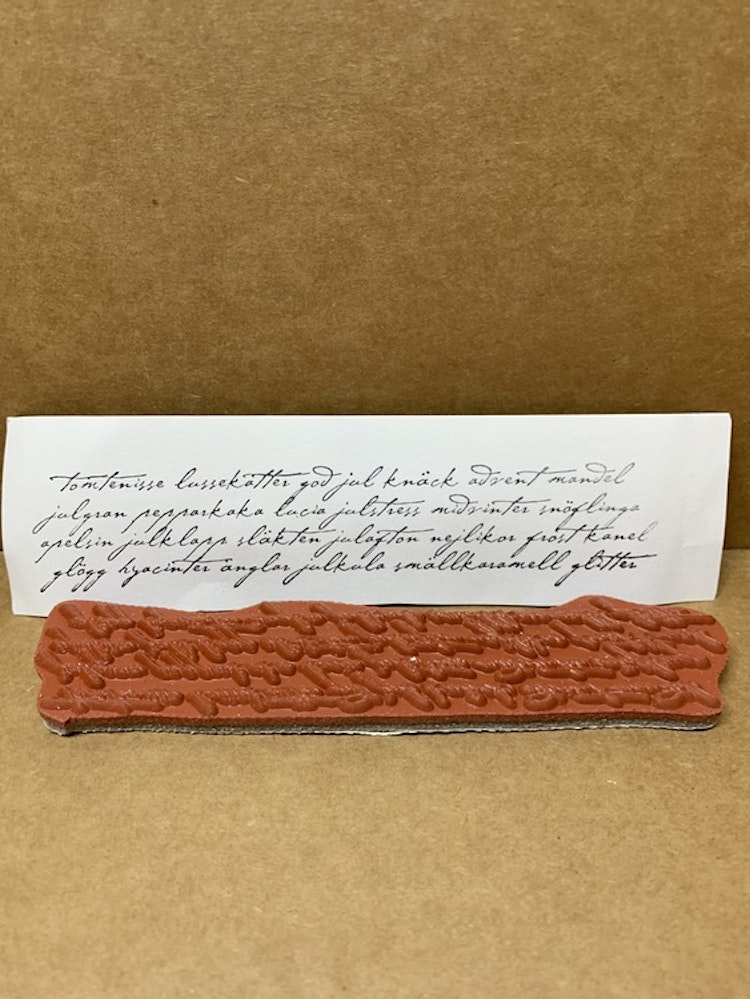 tomtenisse lussekatter god jul knäck advent mandel
julgran pepparkaka lucia julstress midvinter snöflinga
apelsin julklapp släkten julafton nejlikor frost kanel
glögg hyacinter änglar julkula smällkaramell glitter